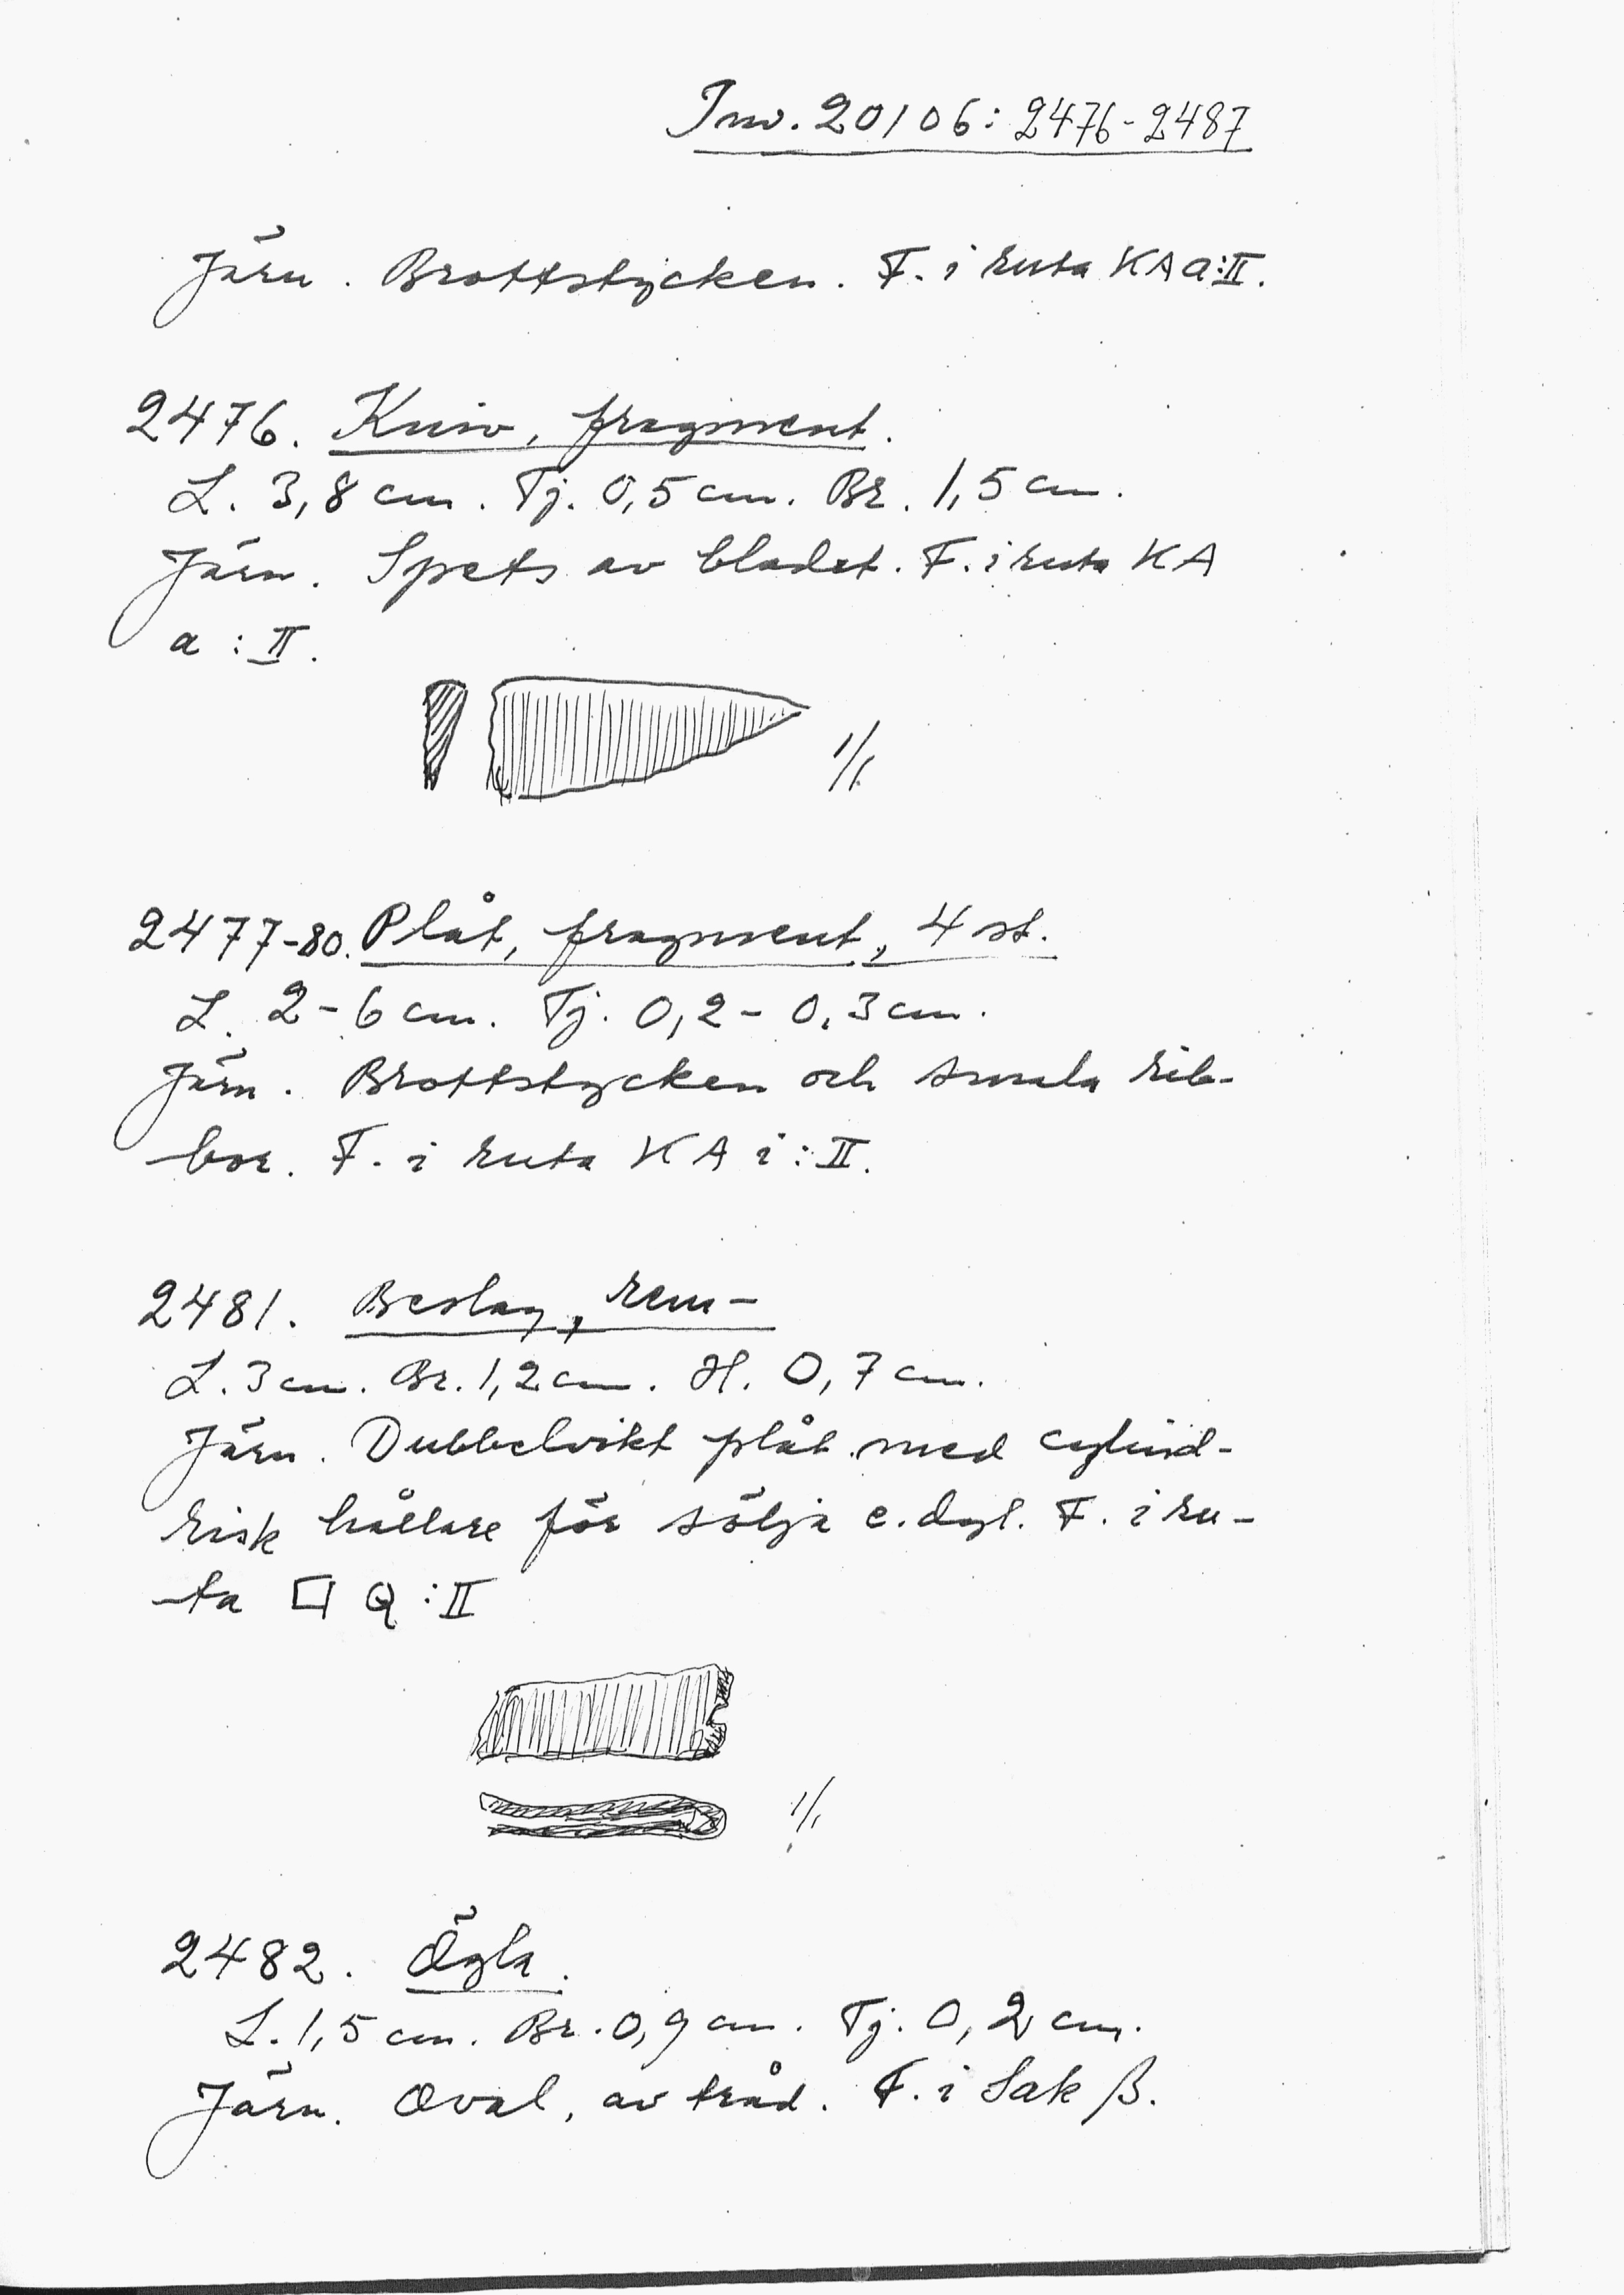 Inv. 20106: 2476-2487
Järn. Brottstycken. F. i ruta KA a:II.
2476. Kniv, fragment.
L. 3,8 cm. Tj. 0,5 cm. Br. 1,5 cm.
Järn. Spets av bladet. F. i ruta KA
a : II.
1/1
2477-80. Plåt, fragment, 4 st.
L. 2-6 cm. Tj. 0,2-0,3 cm.
Järn. Brottstycken och smala rib-
bor. F. i ruta KA i : II.
2481. Beslag, rem-
L. 3 cm. Br. 1,2 cm. H. 0,7 cm.
Järn. Dubbelvikt plåt med cylind-
risk hållare för sölja e. dyl. F. i ru-
ta Q : II
1/1
2482. Ögla.
L. 1,5 cm. Br. 0,9 cm. Tj. 0,2 cm.
Järn. Oval, av tråd. F. i Sak β.